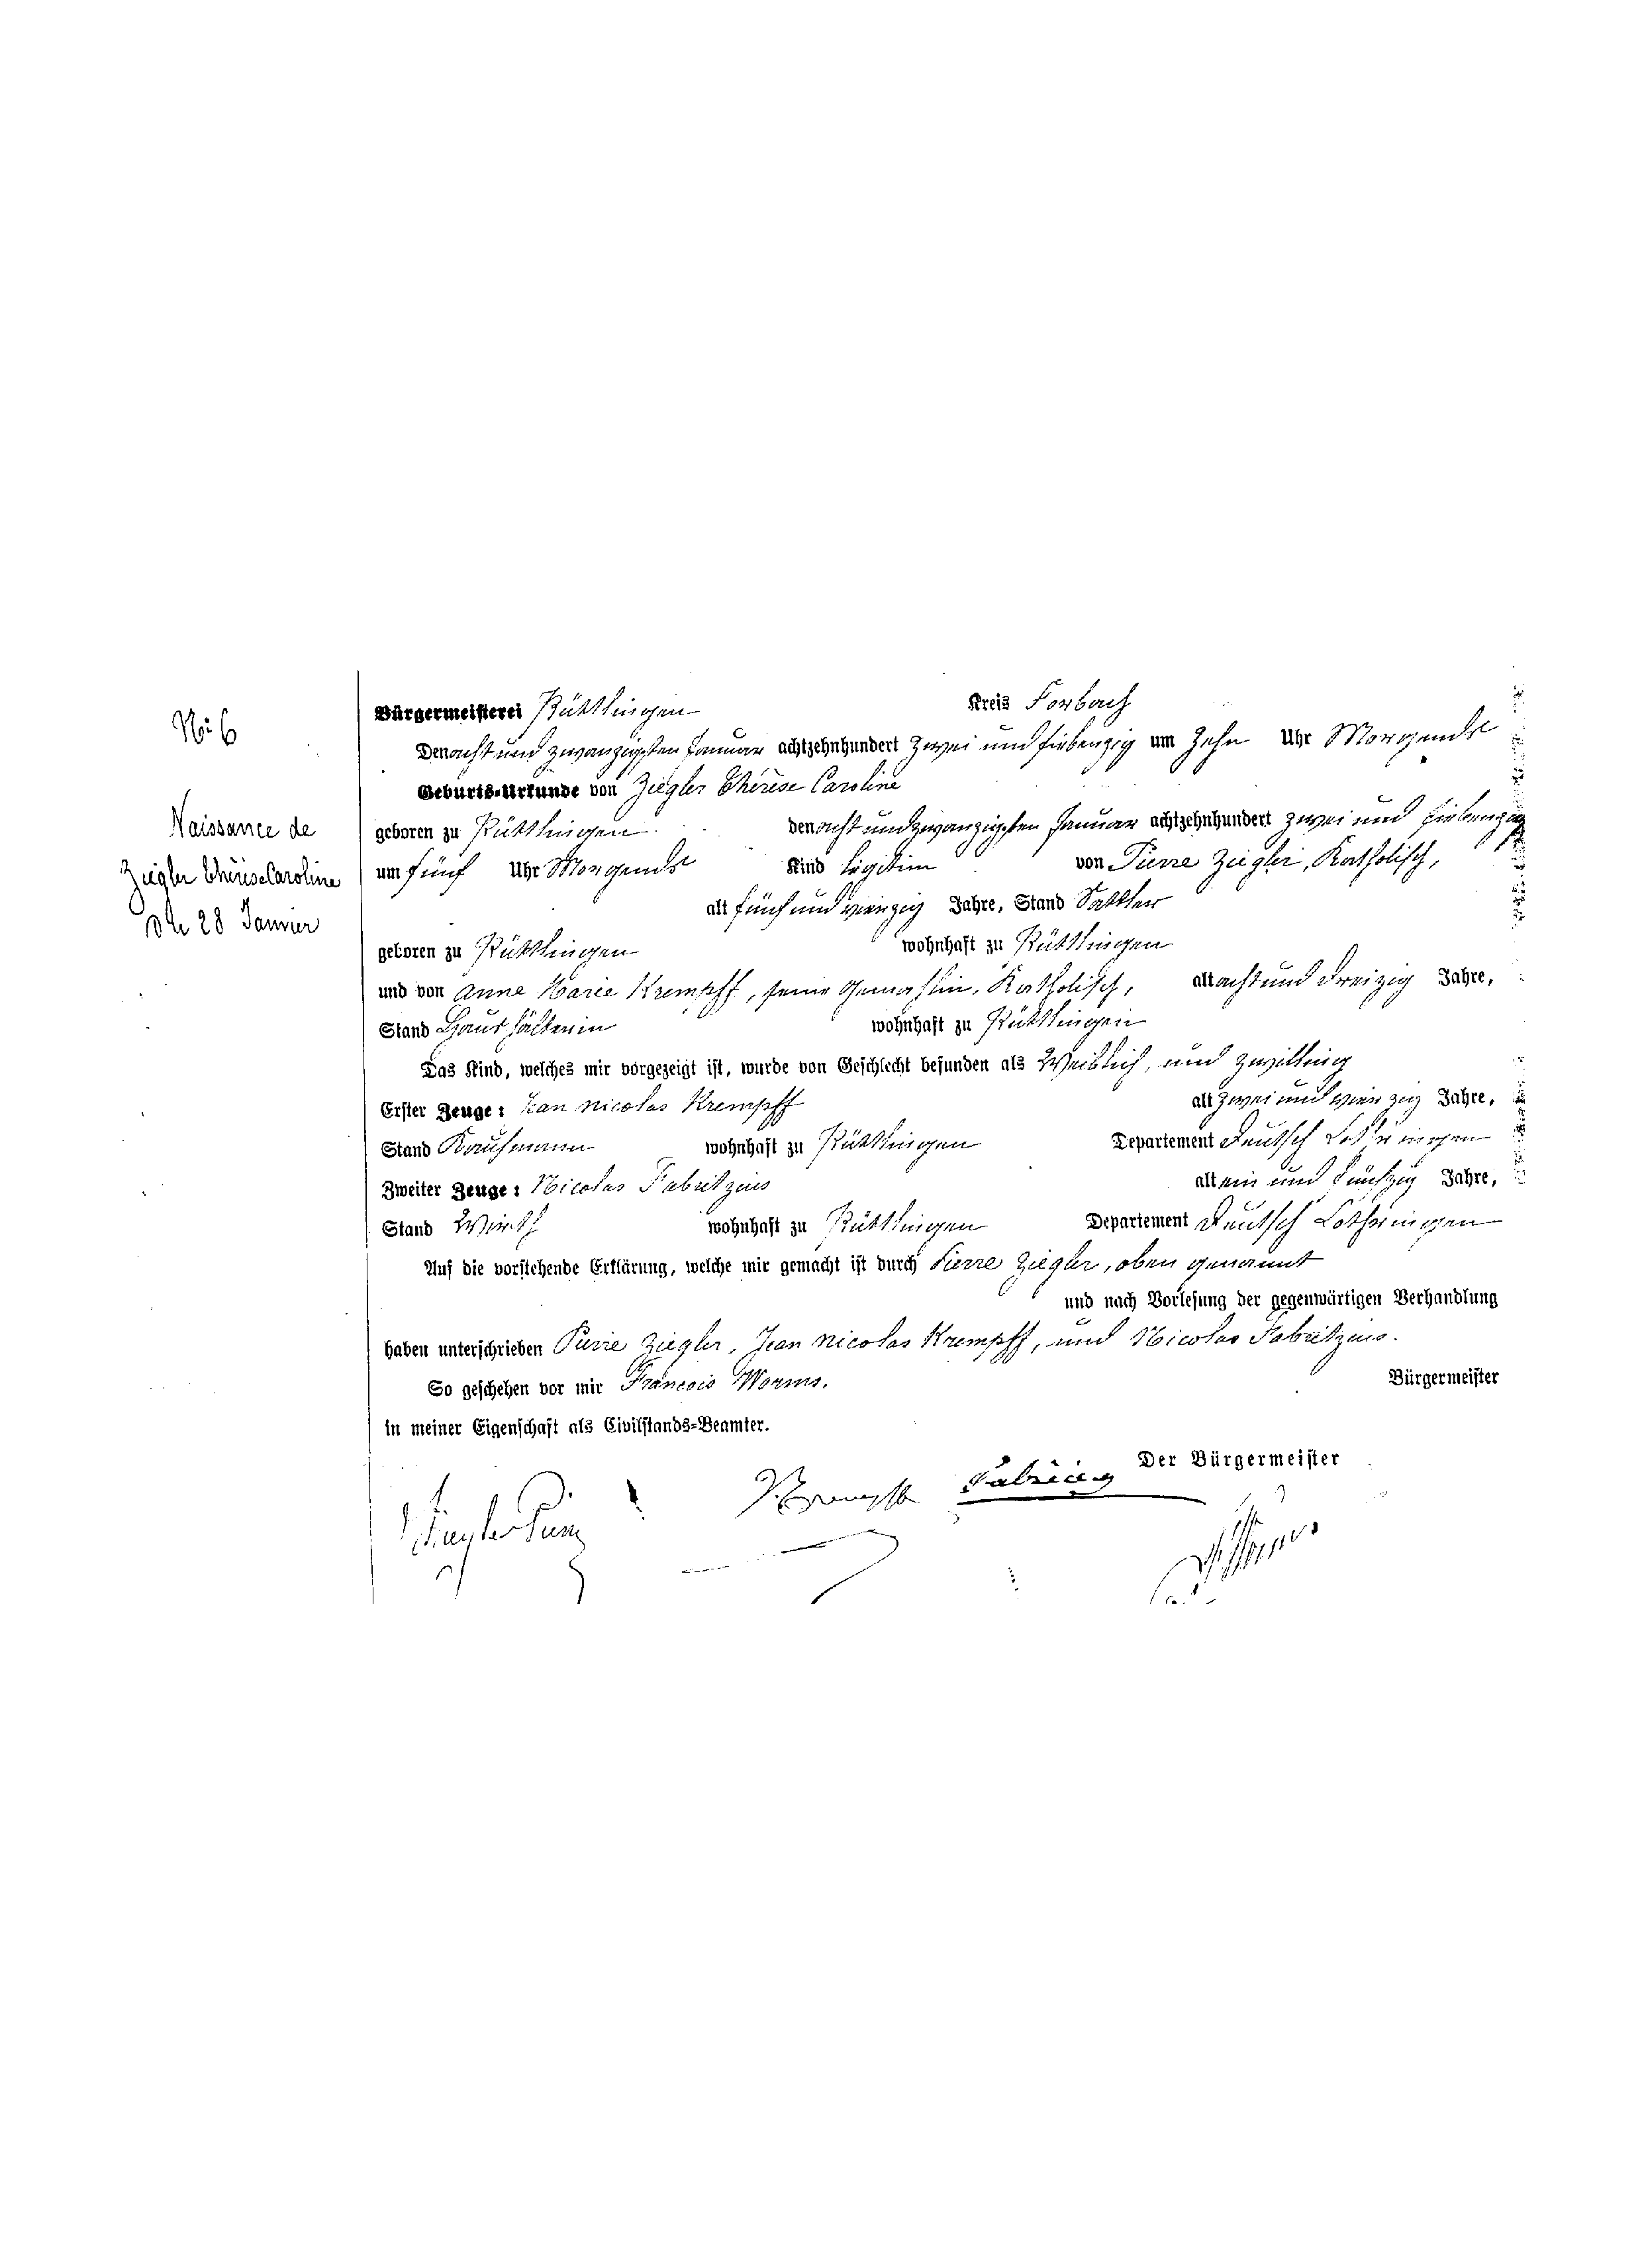 No: 6
Naissance de
Ziegler Thérèse Caroline
Le 28 Janvier
Bürgermeisterei Püttlingen Kreis Forbach
Den acht und zwanzigsten Januar achtzehnhundert zwei und siebenzig um Zehn Uhr Morgends
Geburts-Urkunde von Ziegler Thérèse Caroline
geboren zu Püttlingen den acht und zwanzigsten Januar achtzehnhundert zwei und siebenzig
um fünf Uhr Morgends Kind legitim von Pierre Ziegler, Katholisch,
alt fünf und vierzig Jahre, Stand Sattler
geboren zu Püttlingen wohnhaft zu Püttlingen
und von Anne Marie Krempff, seine Gemahlin, Katholisch, alt acht und dreizig Jahre,
Stand Haushälterin wohnhaft zu Püttlingen
Das Kind, welches mir vorgezeigt ist, wurde von Geschlecht befunden als Weiblich, und Zwilling
Erster Zeuge: Jean Nicolas Krempff alt zwei und vierzig Jahre,
Stand Kaufmann wohnhaft zu Püttlingen Departement Deutsch Lothringen
Zweiter Zeuge: Nicolas Fabritzius alt ein und fünfzig Jahre,
Stand Wirth wohnhaft zu Püttlingen Departement Deutsch Lothringen
Auf die vorstehende Erklärung, welche mir gemacht ist durch Pierre Ziegler, oben genannt
und nach Vorlesung der gegenwärtigen Verhandlung
haben unterschrieben Pierre Ziegler, Jean Nicolas Krempff, und Nicolas Fabritzius.
So geschehen vor mir Francois Worms. Bürgermeister
in meiner Eigenschaft als Civilstands-Beamter.
Der Bürgermeister
Ziegler Krempff